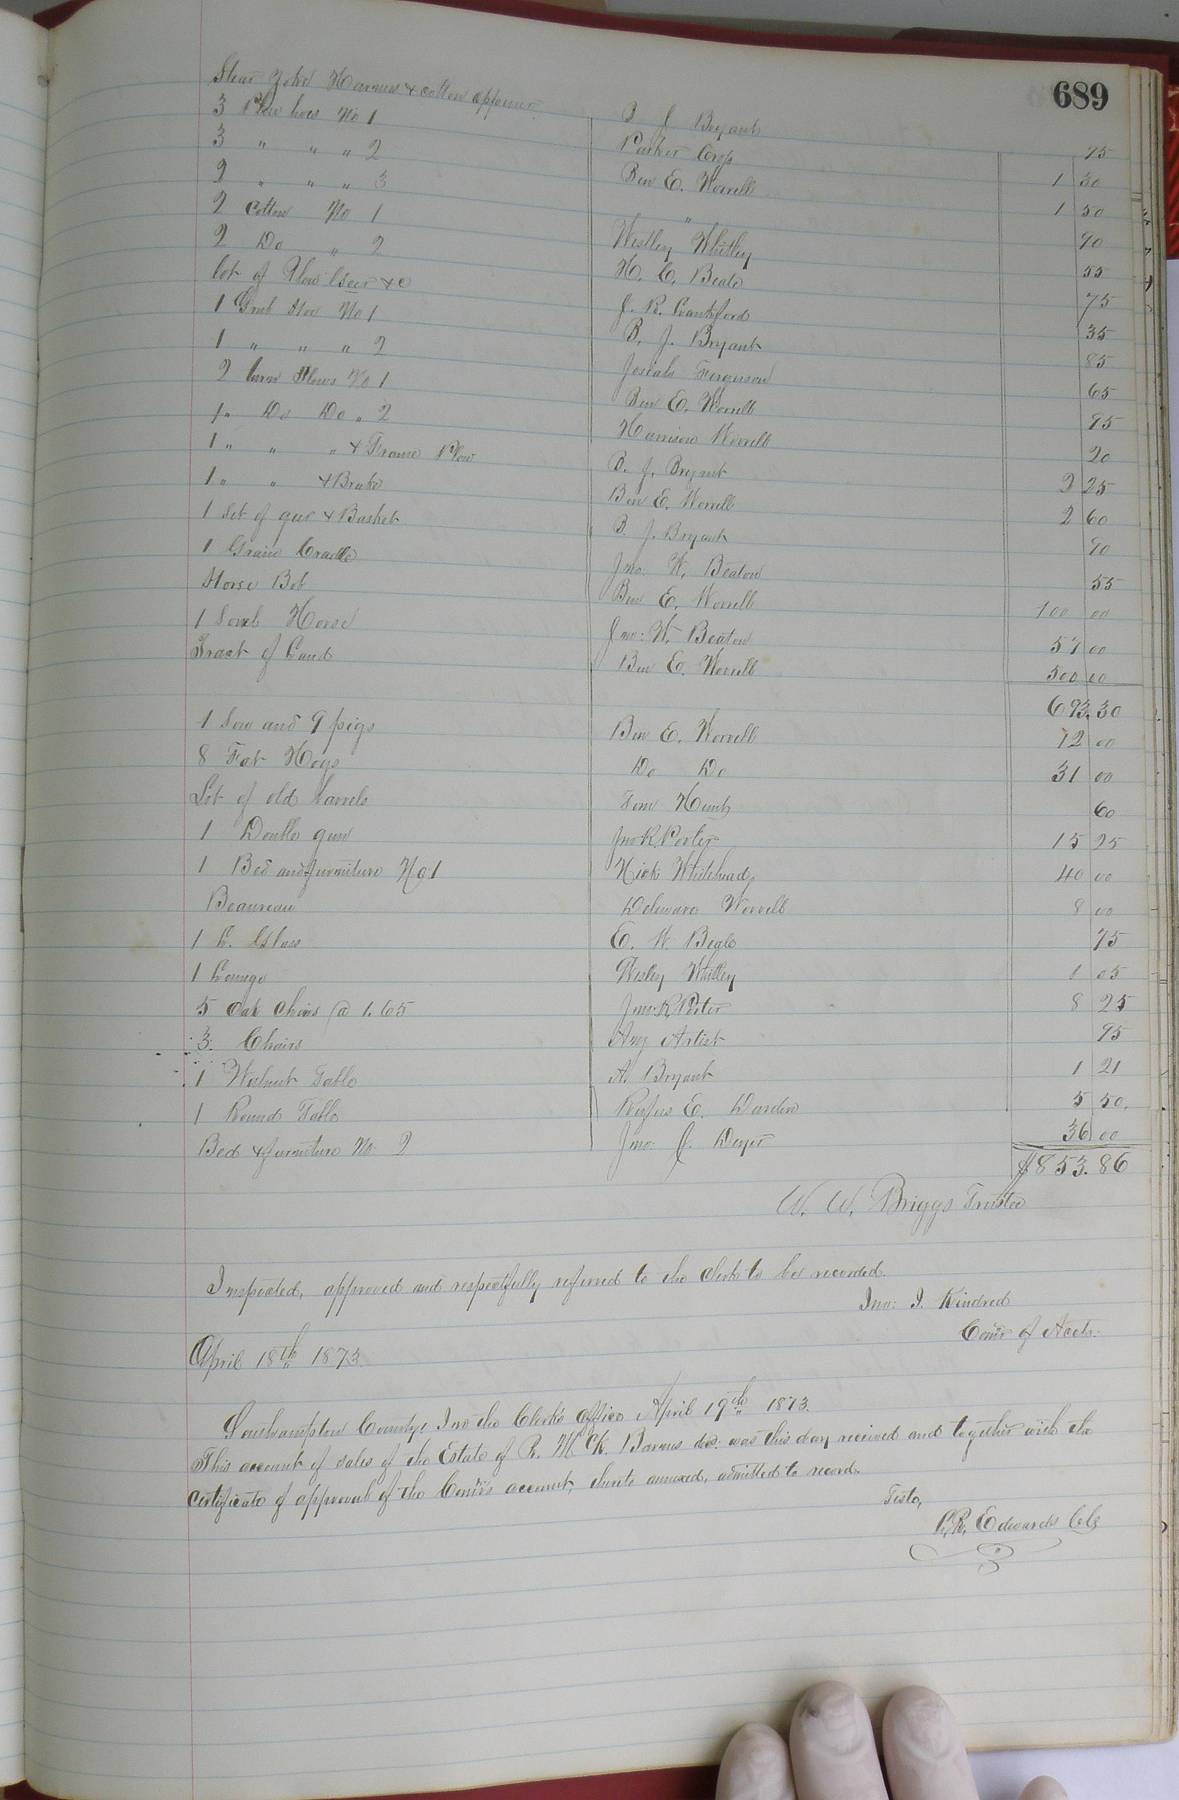 689
Steer Yoke Harness & cotton opener B J Bryant 75
3 Plow hoes No 1 Parker Crop 1 30
3 " " " 2 Ben E. Worrell 1 50
2 " " " 3 " 90
2 Cotton No 1 Westley Whitley 55
2 Do " 2 H. E. Beale 75
Lot of Plow &c J. R. Lankford 35
1 Grub Hoe No 1 B. J. Bryant 85
1 " " " 2 Josiah Ferguson 65
2 Plows No 1 Ben E. Worrell 95
1 " Do Do " 2 Harrison Worrell 20
1 " " " & Frame Plow B. J. Bryant 2 25
1 " " & Brake Ben E. Worrell 2 60
1 Set of gear & Basket B. J. Bryant 90
1 Grain Cradle Jno. W. Beaton 55
Horse Bob Ben E. Worrell 100 00
1 Sorrel Horse Jno: W. Beaton 57 00
Tract of Land Ben E. Worrell 500 00
693.30
1 Sow and 9 pigs Ben E. Worrell 12 00
8 Fat Hogs Do Do 31 00
Lot of old barrels Tom Hunt 60
1 Double gun Jno R Porter 15 25
1 Bed and furniture No 1 Nick Whitehead 40 00
Beaureau Deleware Worrell 8 00
1 L. Glass E. W. Beale 75
1 Lounge Wesley Whitley 1 05
5 Oak Chairs @ 1.65 Jno: R. Porter 8 25
3 Chairs Any Artist 95
1 Walnut Table A. Bryant 1 21
1 Round Table Rufus E. Darden 5 50.
Bed & furniture No. 2 Jno. J. Dryer 36 00
$853.86
W. W. Briggs Trustee
Inspected, approved and respectfully referred to the clerk to be recorded.
Jno: J. Kindred
Comr of Accts.
April 18th 1873.
Southampton County: In the Clerk's Office April 19th 1873.
This account of sales of the Estate of R. H. K. Barnes dec: was this day received and together with the
certificate of approval of the Comr's account, thereto annexed, admitted to record.
Teste,
L. R. Edwards Clk